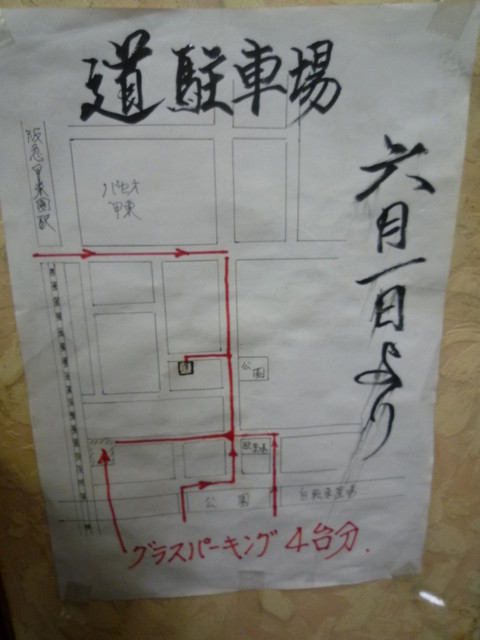 道 駐車場
六月一日より
阪急甲東園駅
パセオ
甲東
道
公園
公 園
グラスパーキング 4台分.